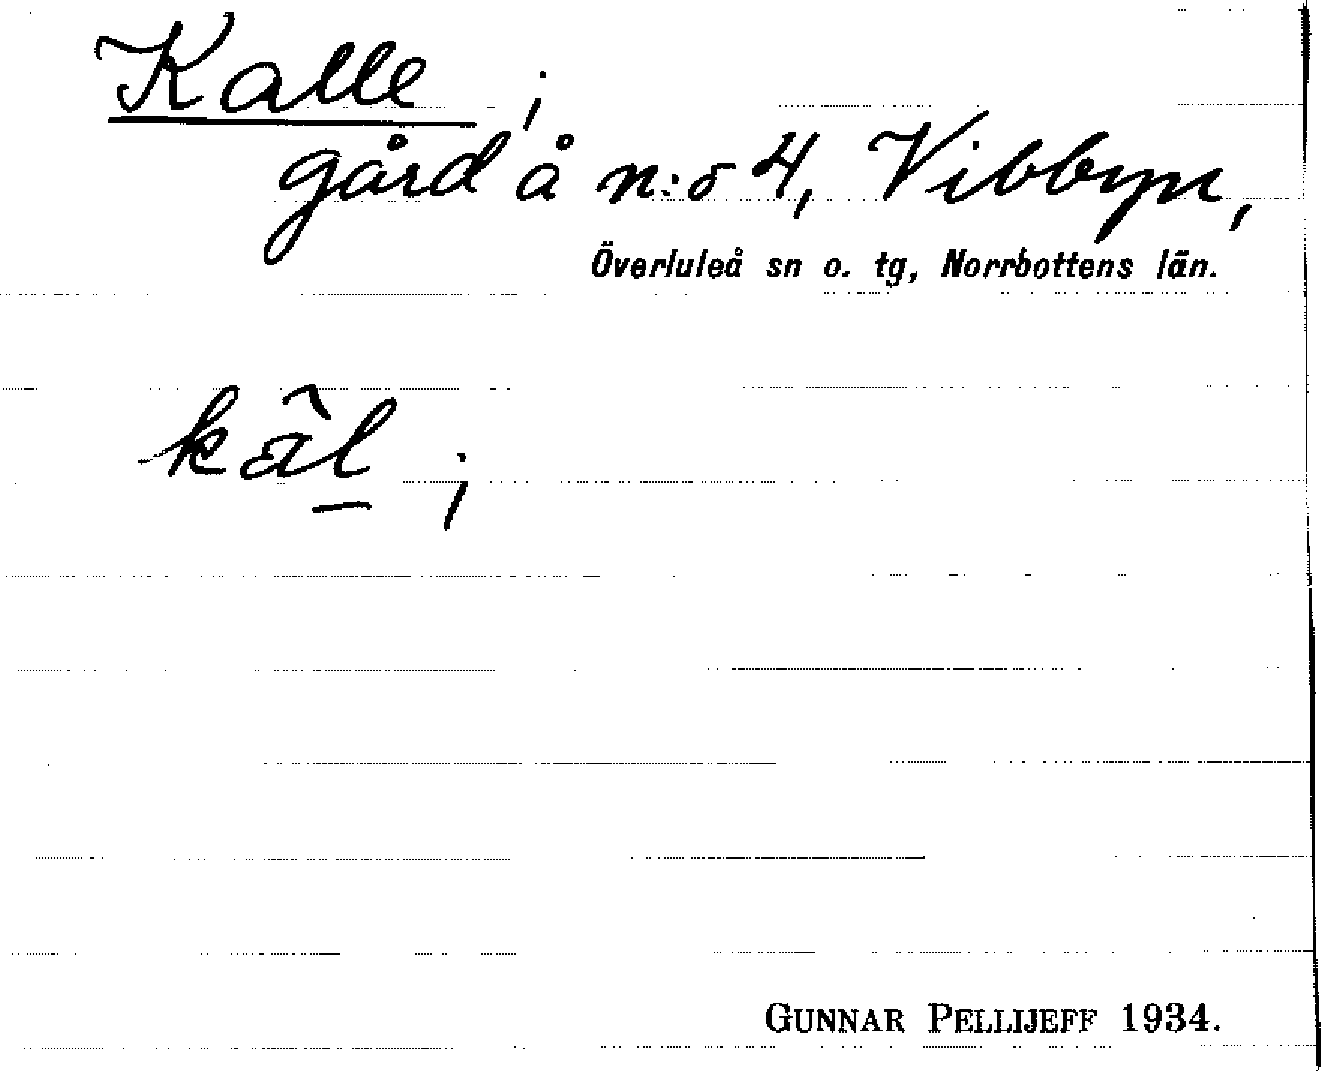 Kalle ;
gård å n:o 4, Vibbyn,
Överluleå sn o. tg, Norrbottens län.
kâl̲ ;
GUNNAR PELLIJEFF 1934.